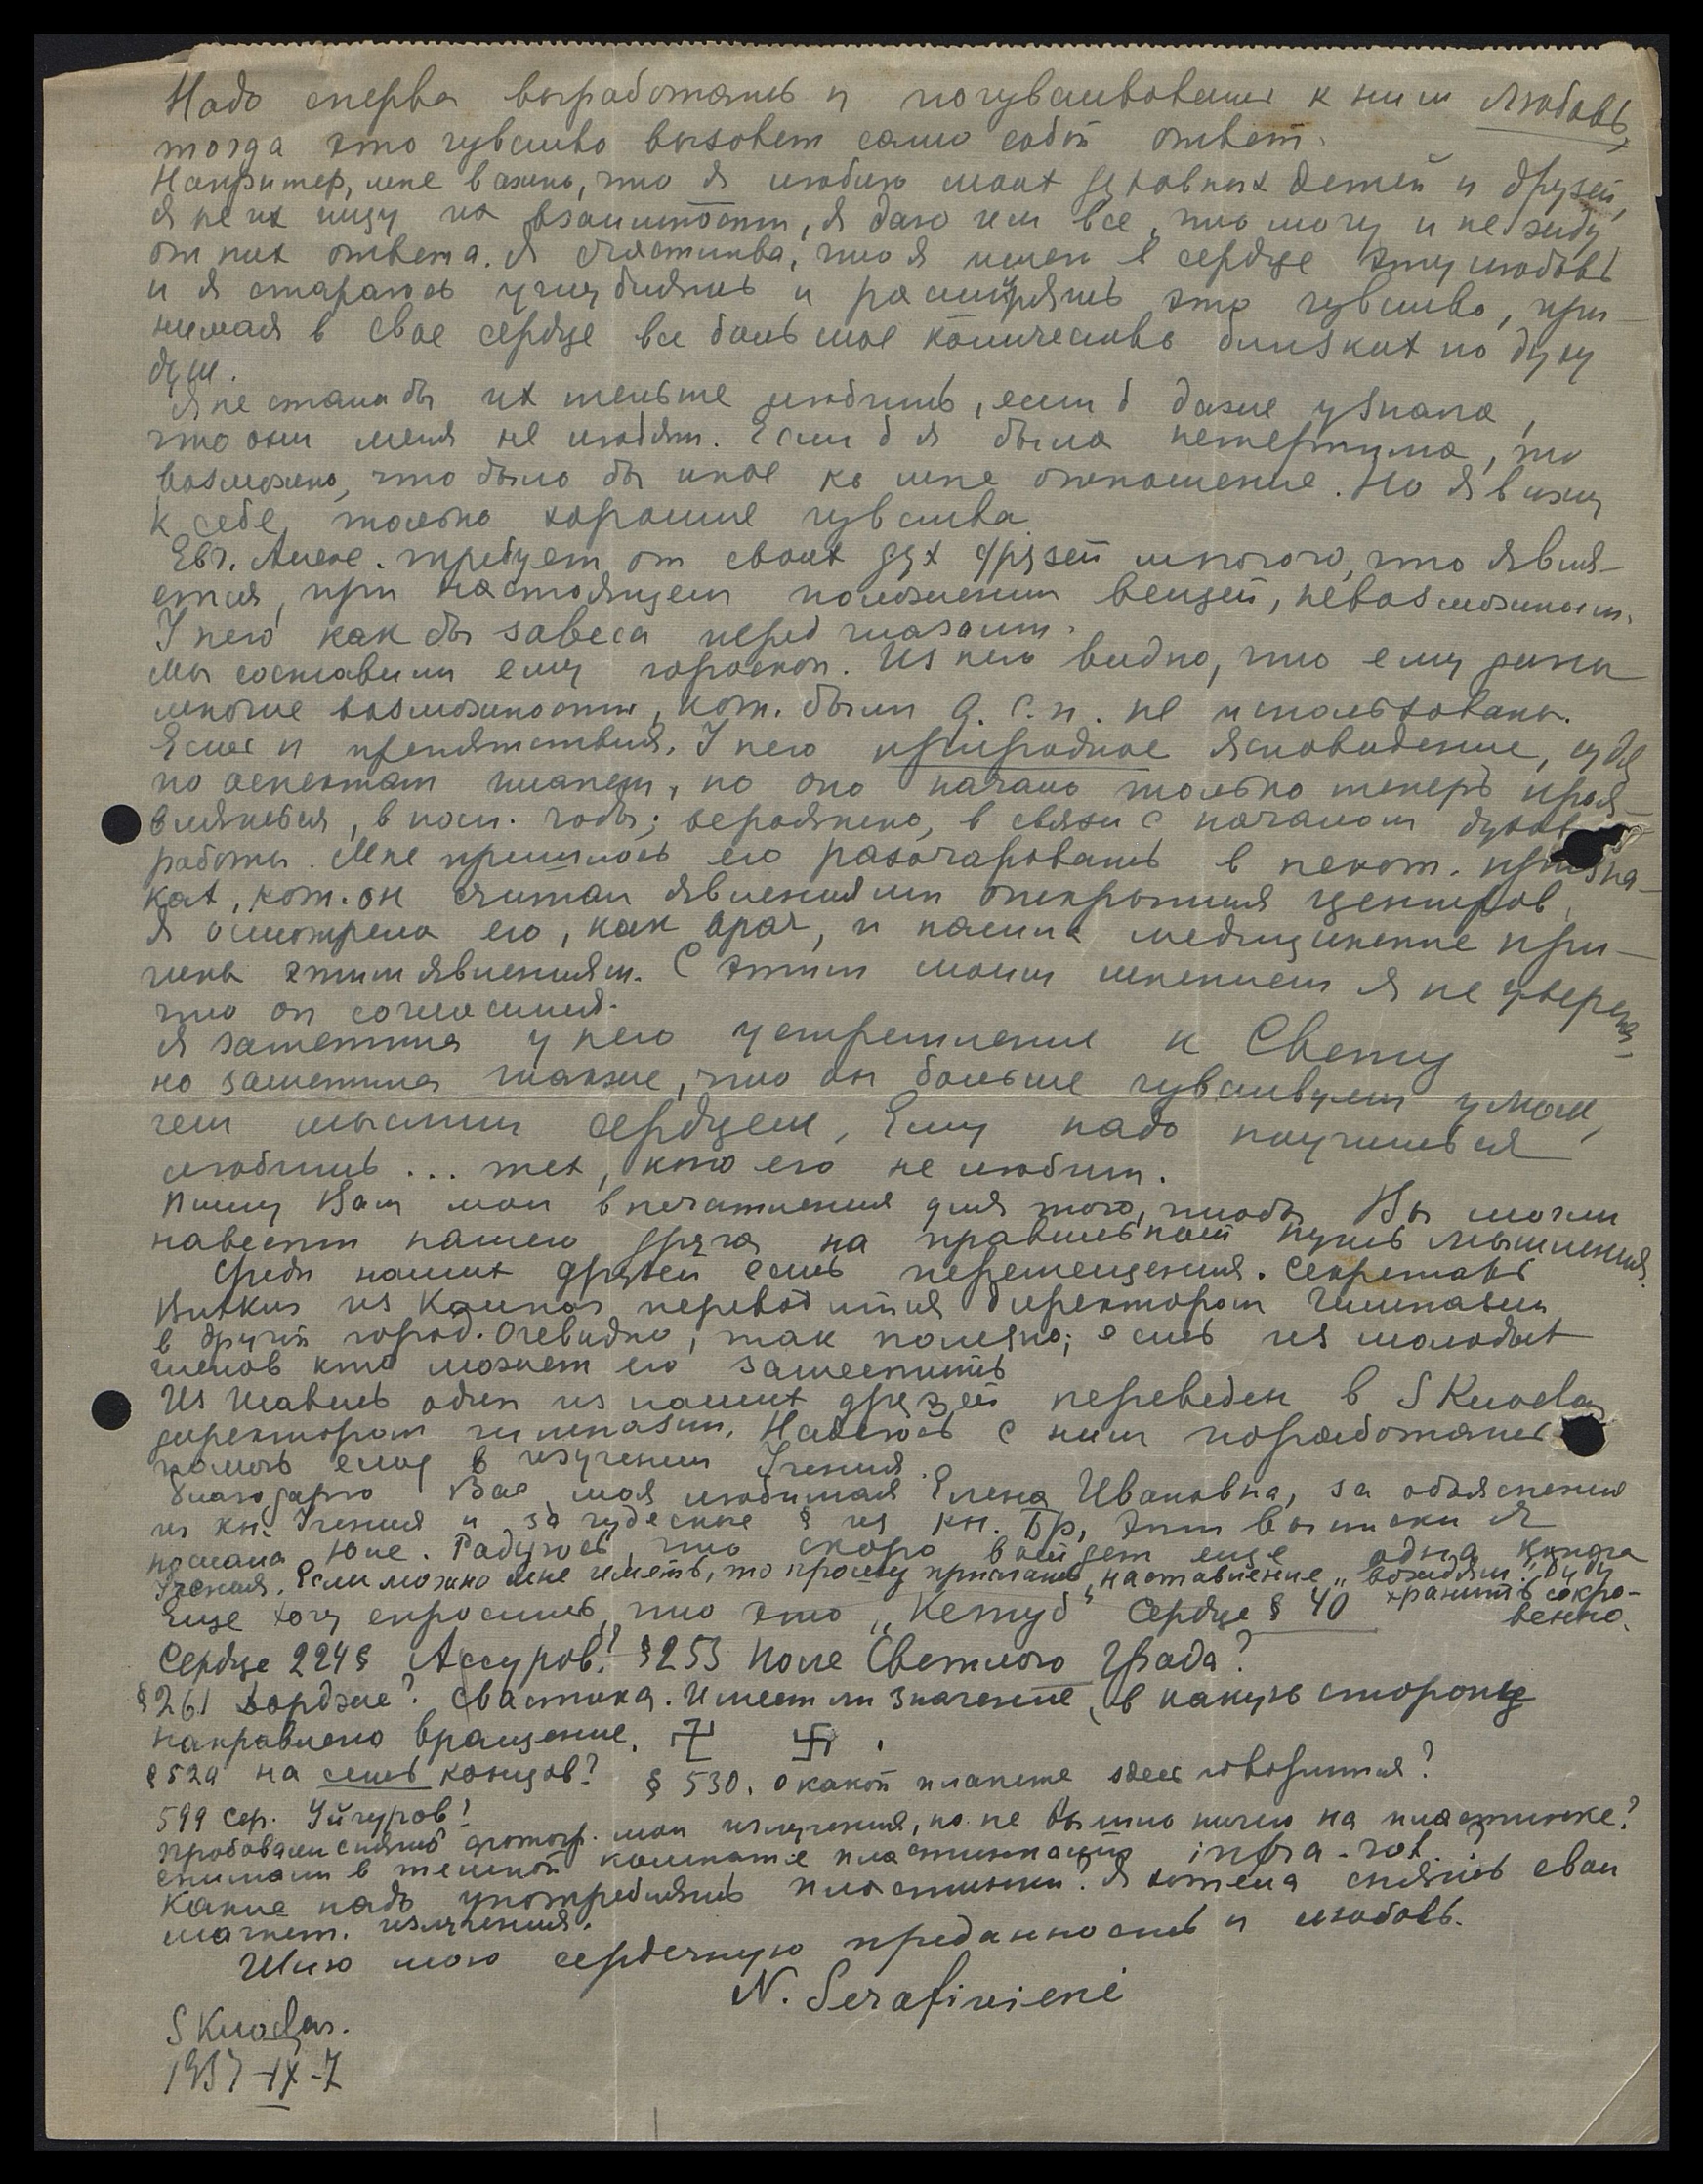 Надо сперва выработать и почувствовать к ним любовь,
тогда это чувство вызовет само собой ответ.
Например, мне важно, что я люблю моих духовных детей и друзей,
я не ищу их взаимности, я даю им все, что могу и не жду
от них ответа. Я счастлива, что я имею в сердце эту любовь
и я стараюсь углублять и расширять это чувство, при-
нимая в свое сердце все большое количество близких по духу
душ.
Я не стала бы их меньше любить, если б даже узнала,
что они меня не любят. Если б я была нетерпима, то
возможно, что было бы иное ко мне отношение. Но я вижу
к себе только хорошие чувства.
Евг. Алекс. требует от своих дух друзей многого, что явля-
ется, при настоящем положении вещей, невозможным.
У него как бы завеса перед глазами.
Мы составили ему гороскоп. Из него видно, что ему даны
многие возможности, кот. были д. с. п. не использованы.
Есть и препятствия. У него природное ясновидение, судя
по аспектам планет, но оно начало только теперь прояв-
вляться, в посл. годы; вероятно, в связи с началом духов
работы. Мне пришлось его разочаровать в некот. призна-
ках, кот. он считал явлениями открытия центров,
Я осмотрела его, как врач, и нашла медицинские при-
чины этим явлениям. С этим моим мнением я не уверена,
что он согласился.
Я заметила у него устремление к Свету
но заметила также, что он больше чувствует умом,
чем мыслит сердцем, Ему надо научиться
любить ... тех, кто его не любит.
Пишу Вам мои впечатления для того, чтобы Вы могли
навести нашего друга на правильный путь мышления.
Среди наших друзей есть перемещения. Секретарь
из Каунас переводится директором гимназии
в другой город. Очевидно, так полезно; есть из молодых
членов кто может его заместить
Из Шавель один из наших друзей переведен в Skuodas
директором гимназии. Надеюсь с ним поработать
помочь ему в изучении Учения.
Благодарю Вас, моя любимая Елена Ивановна, за объяснения
из кн. Учения и за чудесные § из кн. Бр, Эти выписки я
послала Юле. Радуюсь, что скоро выйдет еще одна книга
Учения. Если можно мне иметь, то прошу прислать „наставление„ вождям". Буду
хранить сокро-
венно.
Еще хочу спросить, что это „Кетуб" Сердце § 40
Сердце 224§ Ассуров? §253 Поле Светлого Града?
§261 Дордже? Свастика. Имеет ли значение, в какую сторону
направлено вращение. 卍 卐 .
§529 на семь концов? § 530. О какой планете здесь говорится?
599 Сер. Уйгуров!
Пробовали снять фотогр. мои излучения, но не вышло ничего на пластинке?
снимали в темной комнате пластинкой infra-rot.
Какие надо употреблять пластинки? Я хотела снять свои
магнет. излучения.
Шлю мою сердечную преданность и любовь.
N. Serafinienė
Skuodas.
1937-IX-7